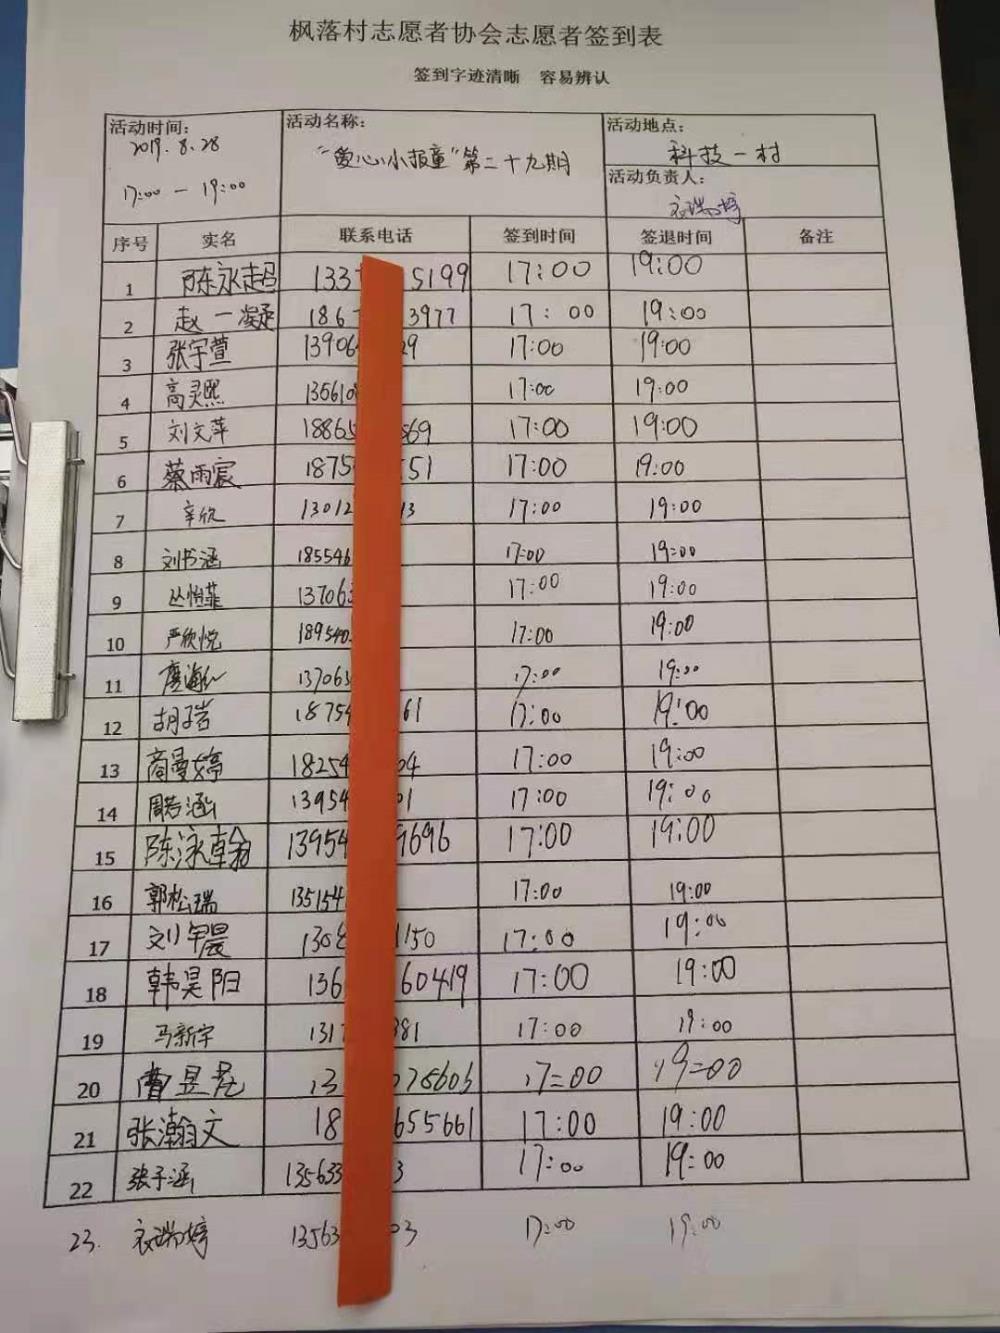 枫落村志愿者协会志愿者签到表
签到字迹清晰 容易辨认
活动时间: 活动名称: 活动地点:
2019.8.28 "爱心小报童"第二十九期 科技一村
17:00 — 19:00 活动负责人:
衣瑞婷
序号 实名 联系电话 签到时间 签退时间 备注
1 陈永超 133 5199 17:00 19:00
2 赵一凝 186 3977 17:00 19:00
3 张宇萱 13906 29 17:00 19:00
4 高灵熙 135610 17:00 19:00
5 刘文萍 18865 569 17:00 19:00
6 蔡雨宸 1875 51 17:00 19:00
7 辛欣 13012 13 17:00 19:00
8 刘书涵 185546 17:00 19:00
9 丛怡菲 13706 17:00 19:00
10 严欣悦 189540 17:00 19:00
11 137063 17:00 19:00
12 胡子岩 18754 61 17:00 19:00
13 商曼婷 18254 04 17:00 19:00
14 周若涵 13954 01 17:00 19:00
15 陈泳翰 13954 9696 17:00 19:00
16 郭松瑞 135154 17:00 19:00
17 刘宇晨 130 1150 17:00 19:00
18 韩昊阳 136 60419 17:00 19:00
19 马新宇 131 381 17:00 19:00
20 曹昱 13 17:00 19:00
21 张瀚文 18 655661 17:00 19:00
22 张子涵 135633 3 17:00 19:00
23. 衣瑞婷 13563 03 17:00 19:00